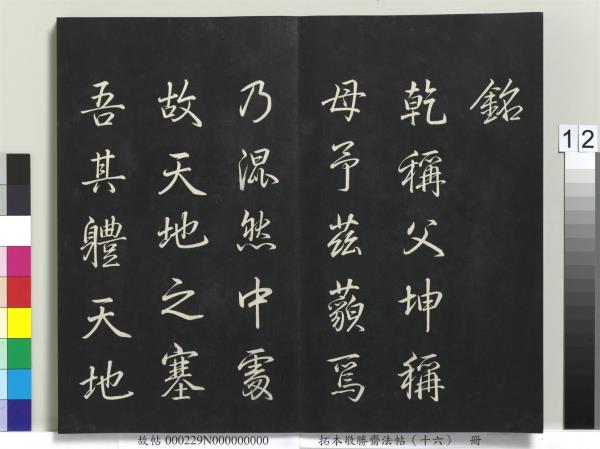 銘
乾稱父坤稱
母予茲藐焉
乃混然中處
故天地之塞
吾其體天地
12
故帖 000229N000000000 拓本敬勝齋法帖（十六） 冊